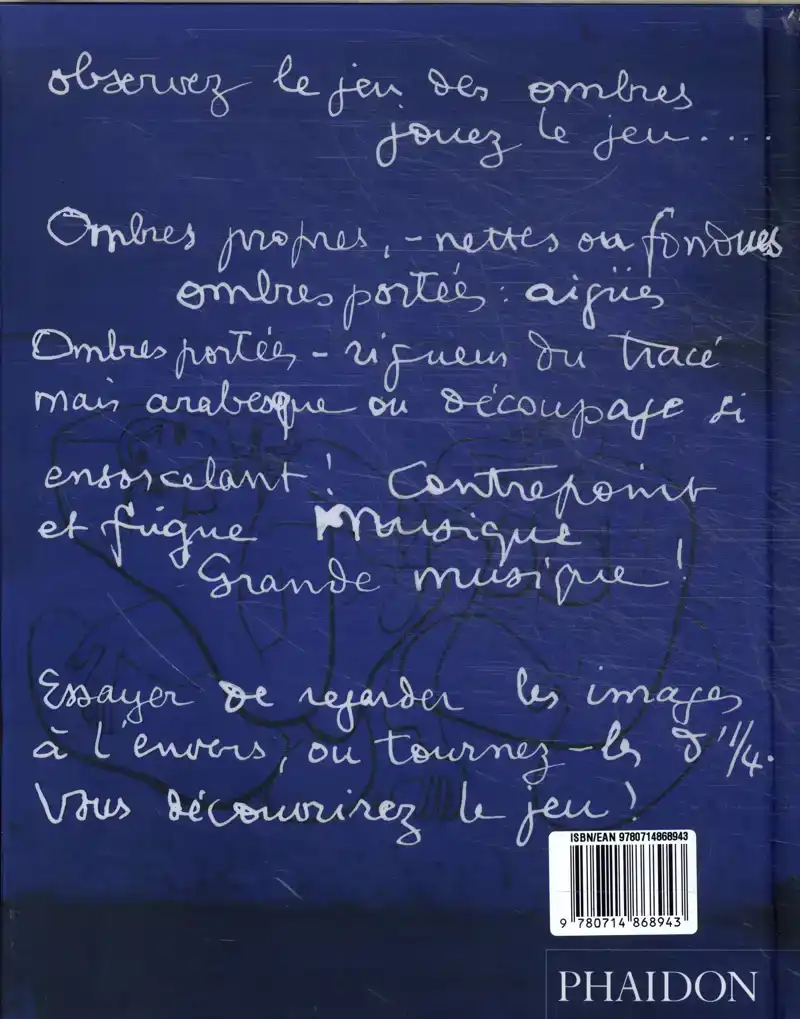 observez le jeu des ombres
jouez le jeu....
Ombres propres, - nettes ou fondues
ombres portées : aigües
Ombres portées - rigueur du tracé
mais arabesque ou découpage si
ensorcelant ! Contrepoint
et fugue Musique
Grande musique !
Essayer de regarder les images
à l'envers, ou tournez-les d'1/4.
Vous découvrirez le jeu !
ISBN/EAN 9780714868943
9 780714 868943
PHAIDON